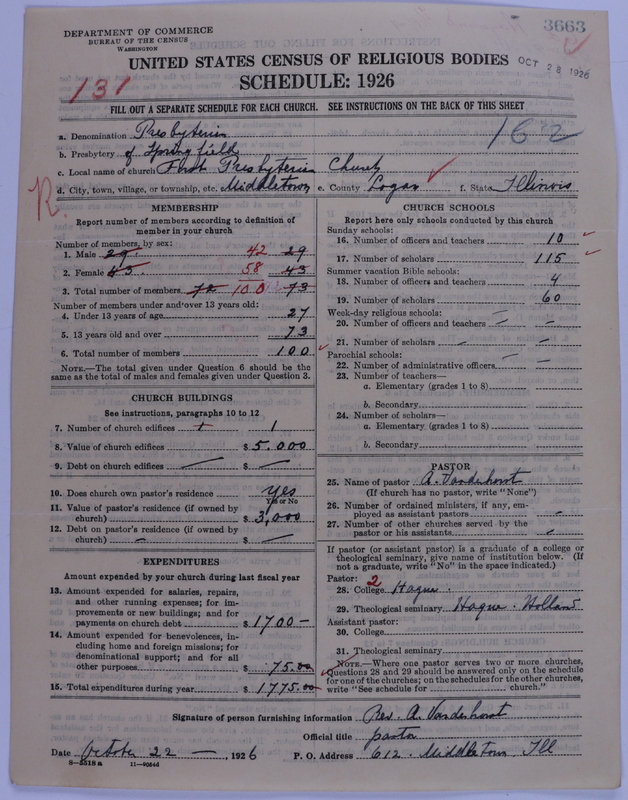 DEPARTMENT OF COMMERCE
BUREAU OF THE CENSUS
WASHINGTON
3663
UNITED STATES CENSUS OF RELIGIOUS BODIES
OCT 28 1926
SCHEDULE: 1926
131
FILL OUT A SEPARATE SCHEDULE FOR EACH CHURCH. SEE INSTRUCTIONS ON THE BACK OF THIS SHEET
162
a. Denomination Presbyterian
b. Presbytery of Springfield
c. Local name of church First Presbyterian Church
d. City, town, village, or township, etc. Middletown e. County Logan f. State Illinois
R.
MEMBERSHIP
Report number of members according to definition of member in your church
Number of members, by sex:
1. Male 29. 42 29
2. Female 43. 58 43
3. Total number of members 72 100 73
Number of members under and over 13 years old:
4. Under 13 years of age 27
5. 13 years old and over 73
6. Total number of members 100
NOTE.—The total given under Question 6 should be the same as the total of males and females given under Question 3.
CHURCH BUILDINGS
See instructions, paragraphs 10 to 12
7. Number of church edifices 1 1
8. Value of church edifices $ 5.000
9. Debt on church edifices — $ —
10. Does church own pastor's residence Yes
Yes or No
11. Value of pastor's residence (if owned by
church) $ 3,000
12. Debt on pastor's residence (if owned by
church) — $ —
EXPENDITURES
Amount expended by your church during last fiscal year
13. Amount expended for salaries, repairs,
and other running expenses; for im-
provements or new buildings; and for
payments on church debt $ 1700 —
14. Amount expended for benevolences, in-
cluding home and foreign missions; for
denominational support; and for all
other purposes $ 75.00
15. Total expenditures during year $ 1775.00
CHURCH SCHOOLS
Report here only schools conducted by this church
Sunday schools:
16. Number of officers and teachers 10
17. Number of scholars 115
Summer vacation Bible schools:
18. Number of officers and teachers 4
19. Number of scholars 60
Week-day religious schools: —
20. Number of officers and teachers — —
21. Number of scholars — —
Parochial schools: —
22. Number of administrative officers —
23. Number of teachers—
a. Elementary (grades 1 to 8)
b. Secondary
24. Number of scholars—
a. Elementary (grades 1 to 8)
b. Secondary
PASTOR
25. Name of pastor A. Vanderhorst
(If church has no pastor, write "None")
26. Number of ordained ministers, if any, em-
ployed as assistant pastors —
27. Number of other churches served by the
pastor or his assistants —
If pastor (or assistant pastor) is a graduate of a college or theological seminary, give name of institution below. (If not a graduate, write "No" in the space indicated.)
Pastor: 2
28. College Hague
29. Theological seminary Hague. Holland
Assistant pastor:
30. College
31. Theological seminary
NOTE.—Where one pastor serves two or more churches, Questions 28 and 29 should be answered only on the schedule for one of the churches; on the schedules for the other churches, write "See schedule for church."
Signature of person furnishing information Rev. A. Vanderhorst
Official title pastor
Date October 22 — , 1926 P. O. Address 612. Middletown Ill
8-5518 a 11-90646